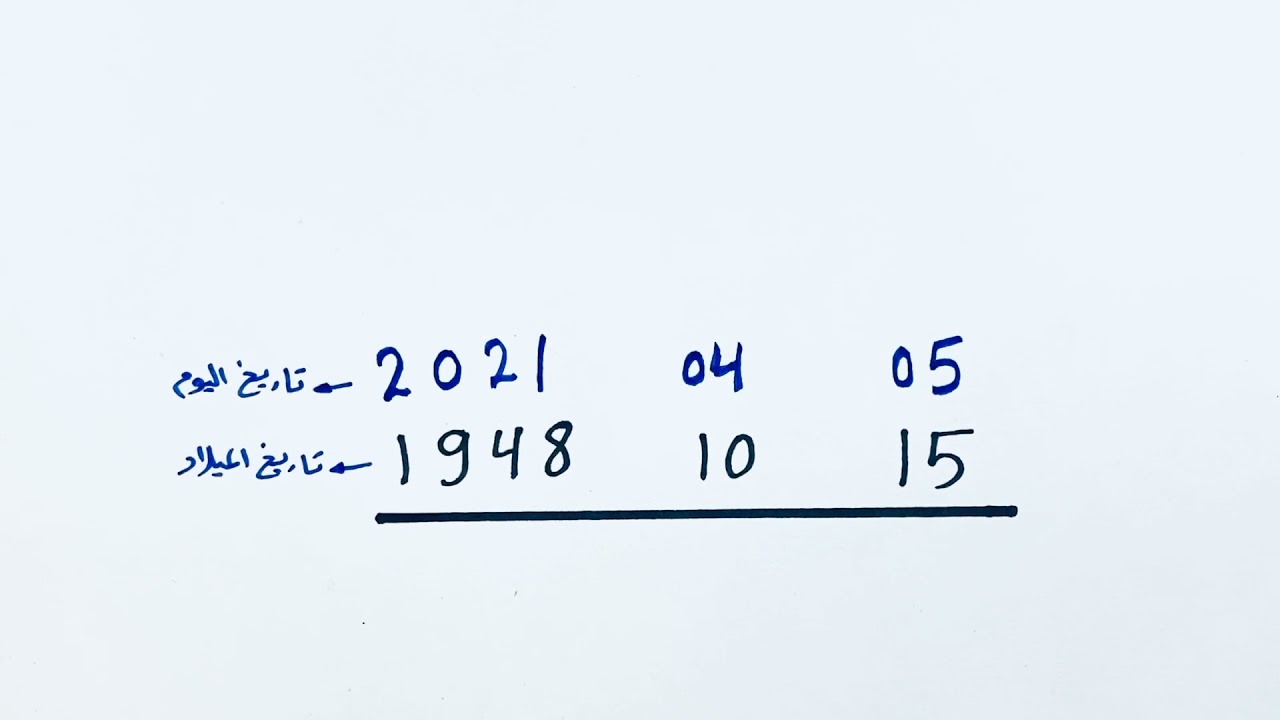 تاريخ اليوم ← 2021 04 05
تاريخ الميلاد ← 1948 10 15